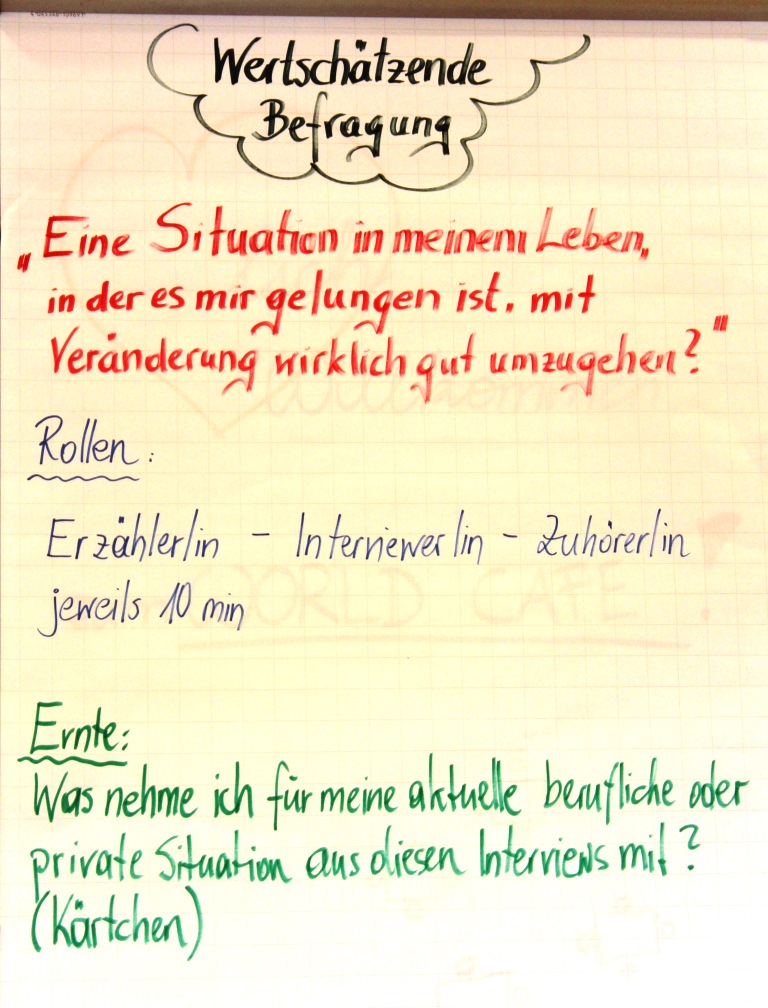 Wertschätzende
Befragung
„Eine Situation in meinem Leben,
in der es mir gelungen ist, mit
Veränderung wirklich gut umzugehen?"
Rollen:
Erzähler/in - Interviewer/in - Zuhörer/in
jeweils 10 min
WORLD CAFE
Ernte:
Was nehme ich für meine aktuelle berufliche oder
private Situation aus diesen Interviews mit?
(Kärtchen)